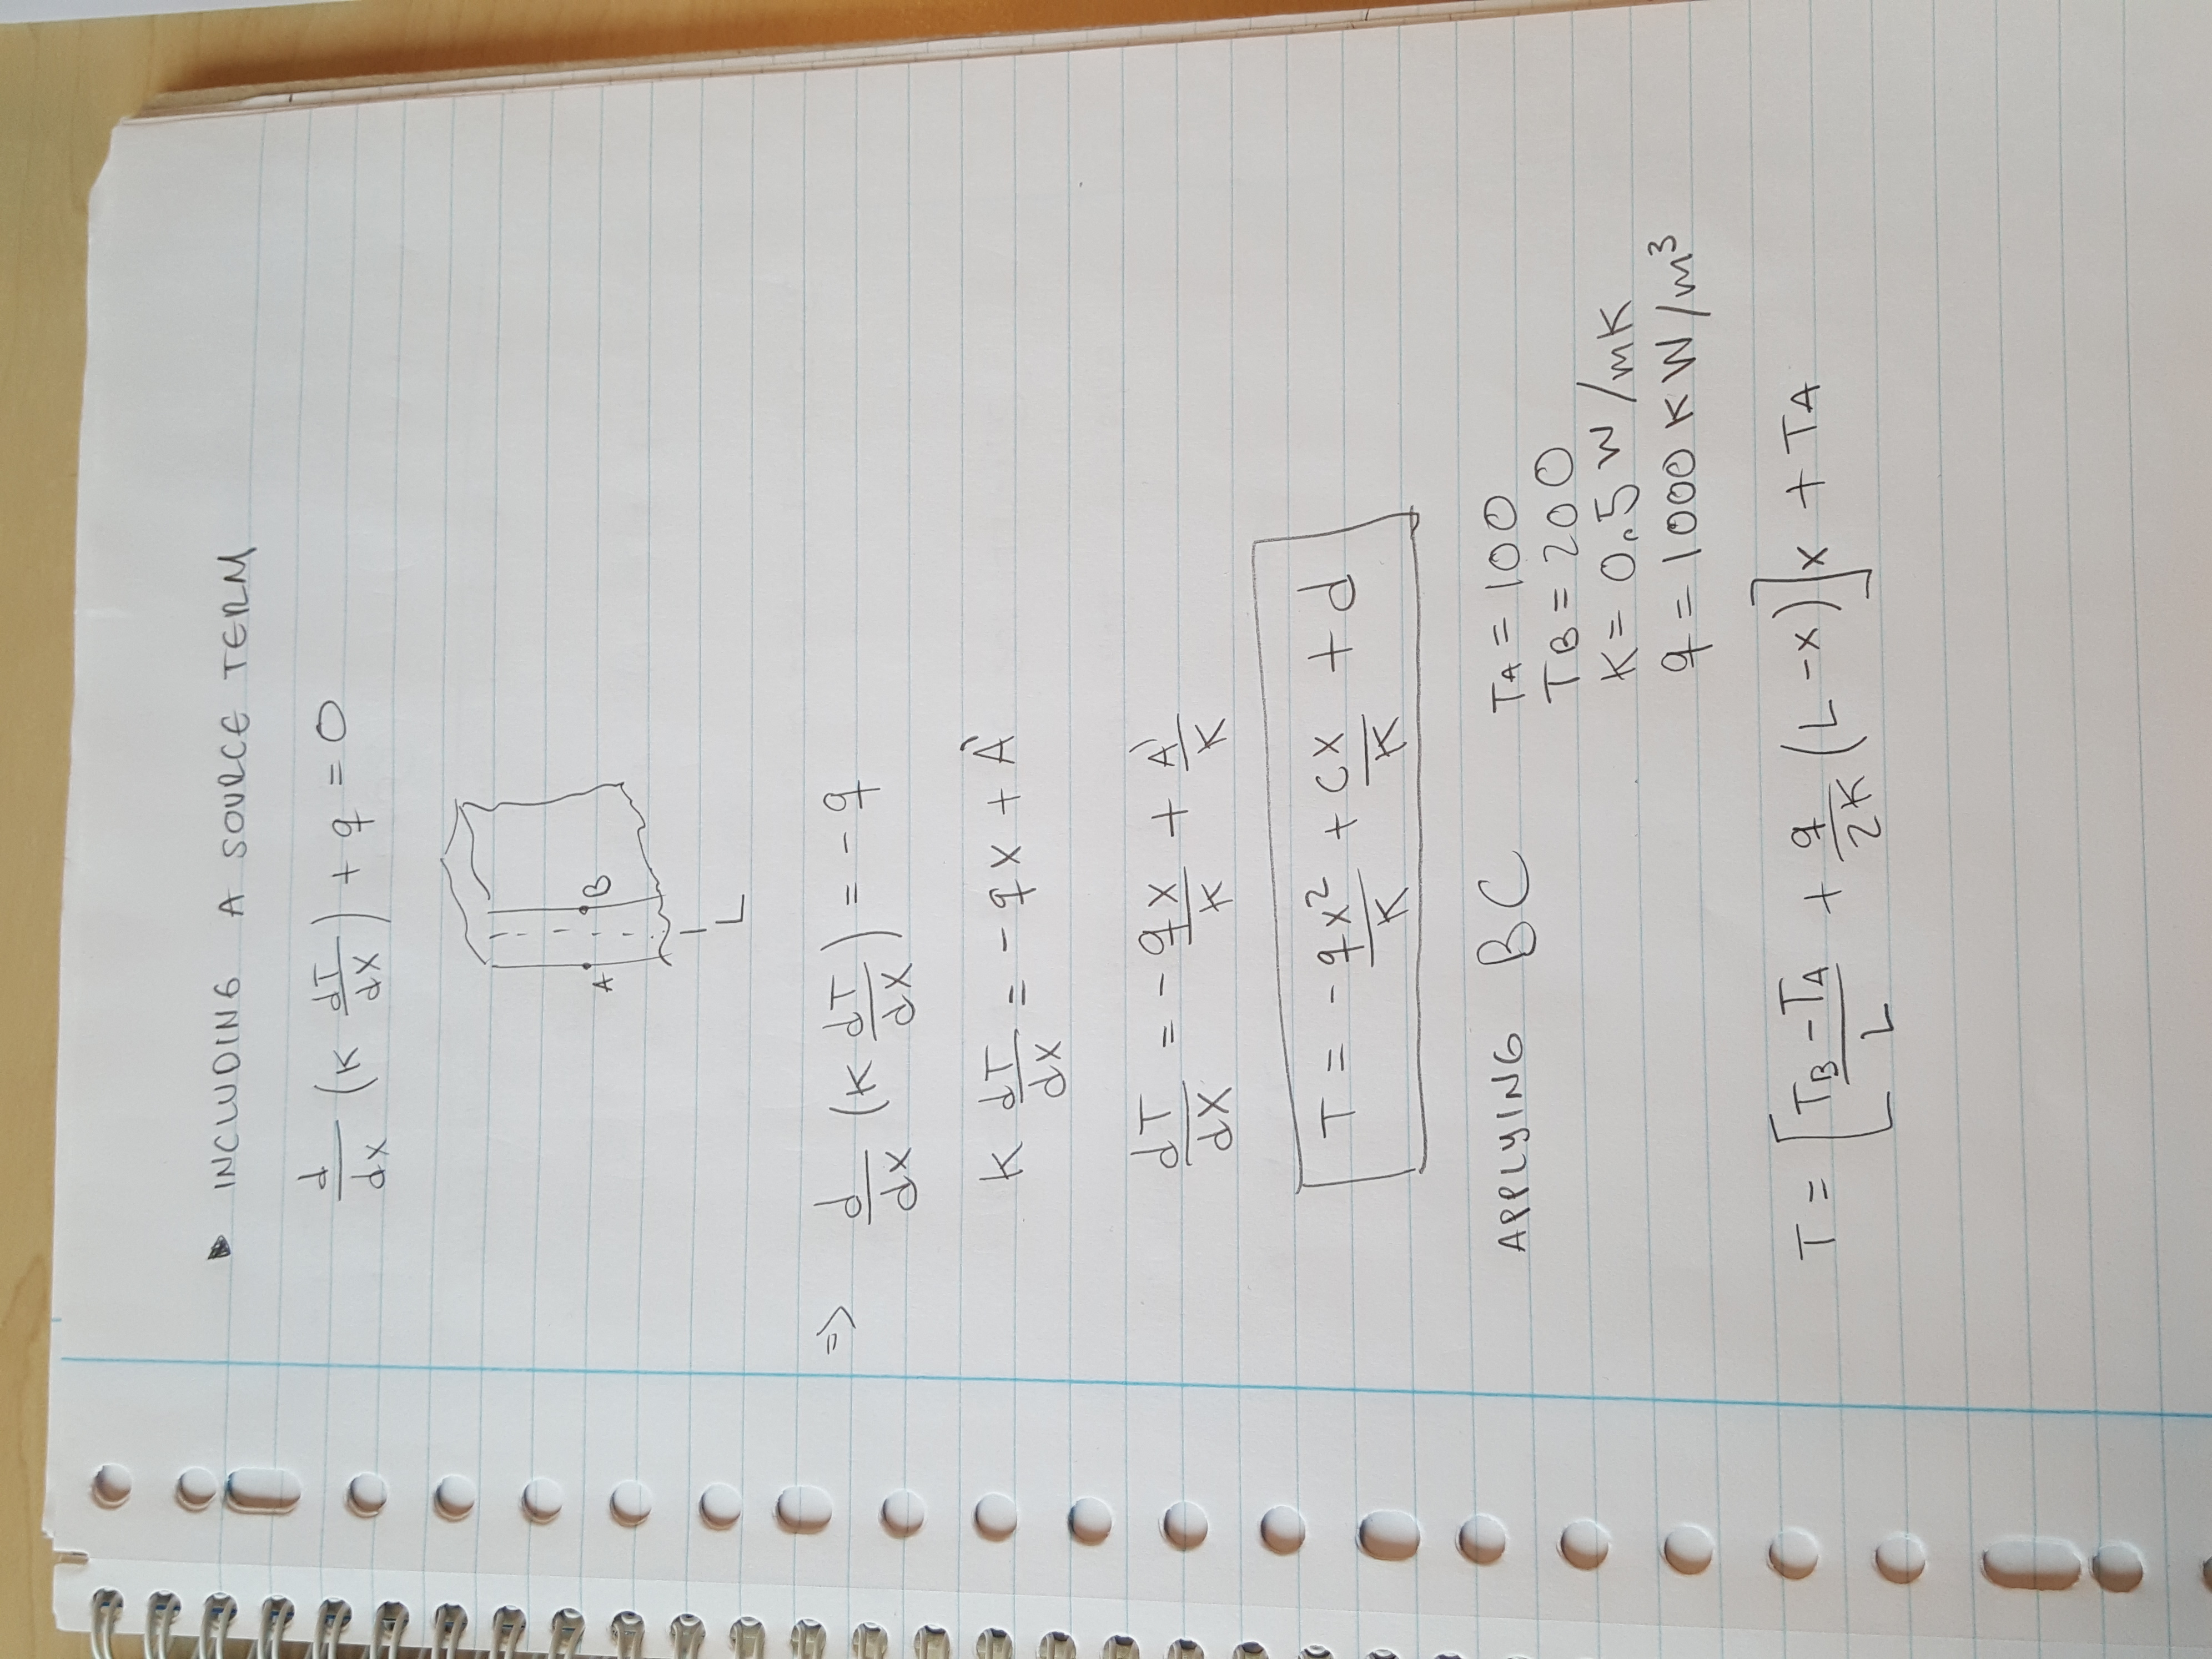 ▶ INCLUDING A SOURCE TERM
d/dx (K dT/dx) + q = 0
A B
L
=> d/dx (K dT/dx) = - q
K dT/dx = - qx + A'
dT/dx = - qx/K + A'/K
T = - qx²/K + cx/K + d
APPLYING BC TA = 100
TB = 200
K = 0.5 W/mK
q = 1000 KW/m³
T = [TB - TA/L + q/2K (L - x)] x + TA